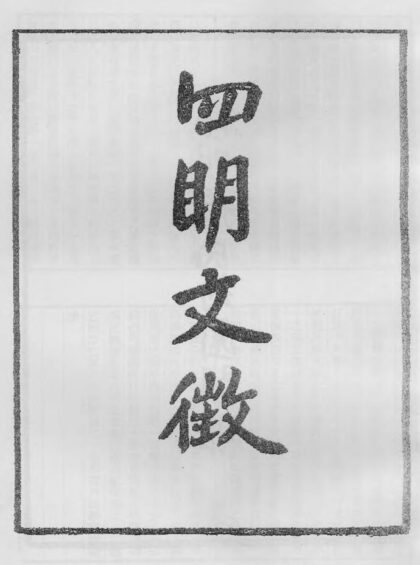 四明文徵